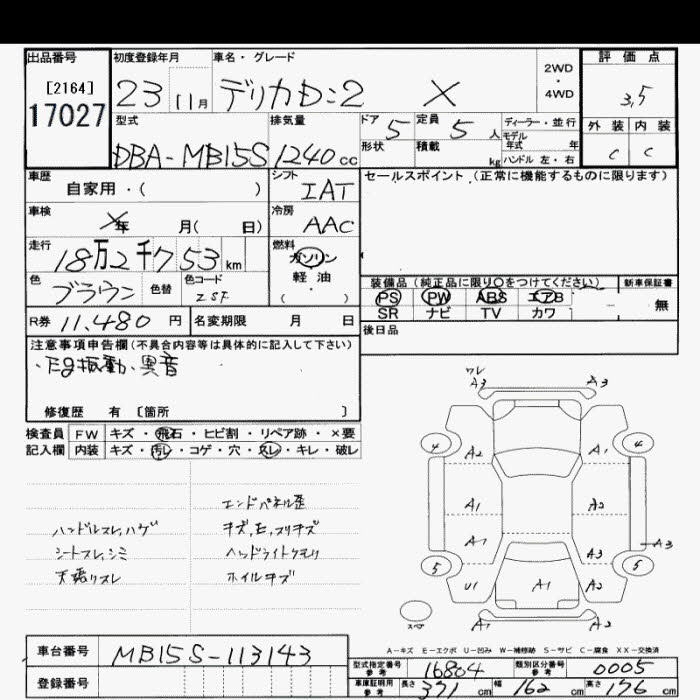 出品番号 初度登録年月 車名・グレード 評価点
[2164] 23 11月 デリカD:2 X 2WD・4WD 3.5
17027
型式 排気量 ドア 5 定員 5 人 ディーラー・並行 外装 内装
DBA-MB15S 1240 cc 形状 積載 kg モデル年式 年 C C
ハンドル 左・右
車歴 シフト セールスポイント(正常に機能するものに限ります)
自家用・( ) IAT
車検 冷房
年 月( 日) AAC
走行 燃料
18万2千753km ガソリン
色 色替 色コード 軽油 装備品(純正品に限り○をつけてください) 新車保証書
ブラウン ZSF ( ・ ) PS PW ABS エアB 無
SR ナビ TV カワ
R券 11,480 円 名変期限 月 日 後日品
注意事項申告欄(不具合内容等は具体的に記入して下さい)
・Eg振動、異音
修復歴 有 [箇所 ]
検査員 FW キズ・飛石・ヒビ割・リペア跡・×要
記入欄 内装 キズ・汚レ・コゲ・穴・スレ・キレ・破レ
エンドパネル歪
ハンドルスレ,ハゲ キズ,E,スリキズ
シートスレ,シミ ヘッドライトクモリ
天張りスレ ホイルキズ
ワレ
A3 A3
4 A2 A1 4
A1 A2
A1 A3 A3
5 U1 A1 A2 5
スペア A1 A2
A-キズ E-エクボ U-凹み W-補修跡 S-サビ C-腐食 XX-交換済
車台番号 MB15S-113143
登録番号
型式指定番号 参考 16804 類別区分番号 参考 0005
車庫証明用 参考 長さ 371 cm 幅 162 cm 高さ 176 cm